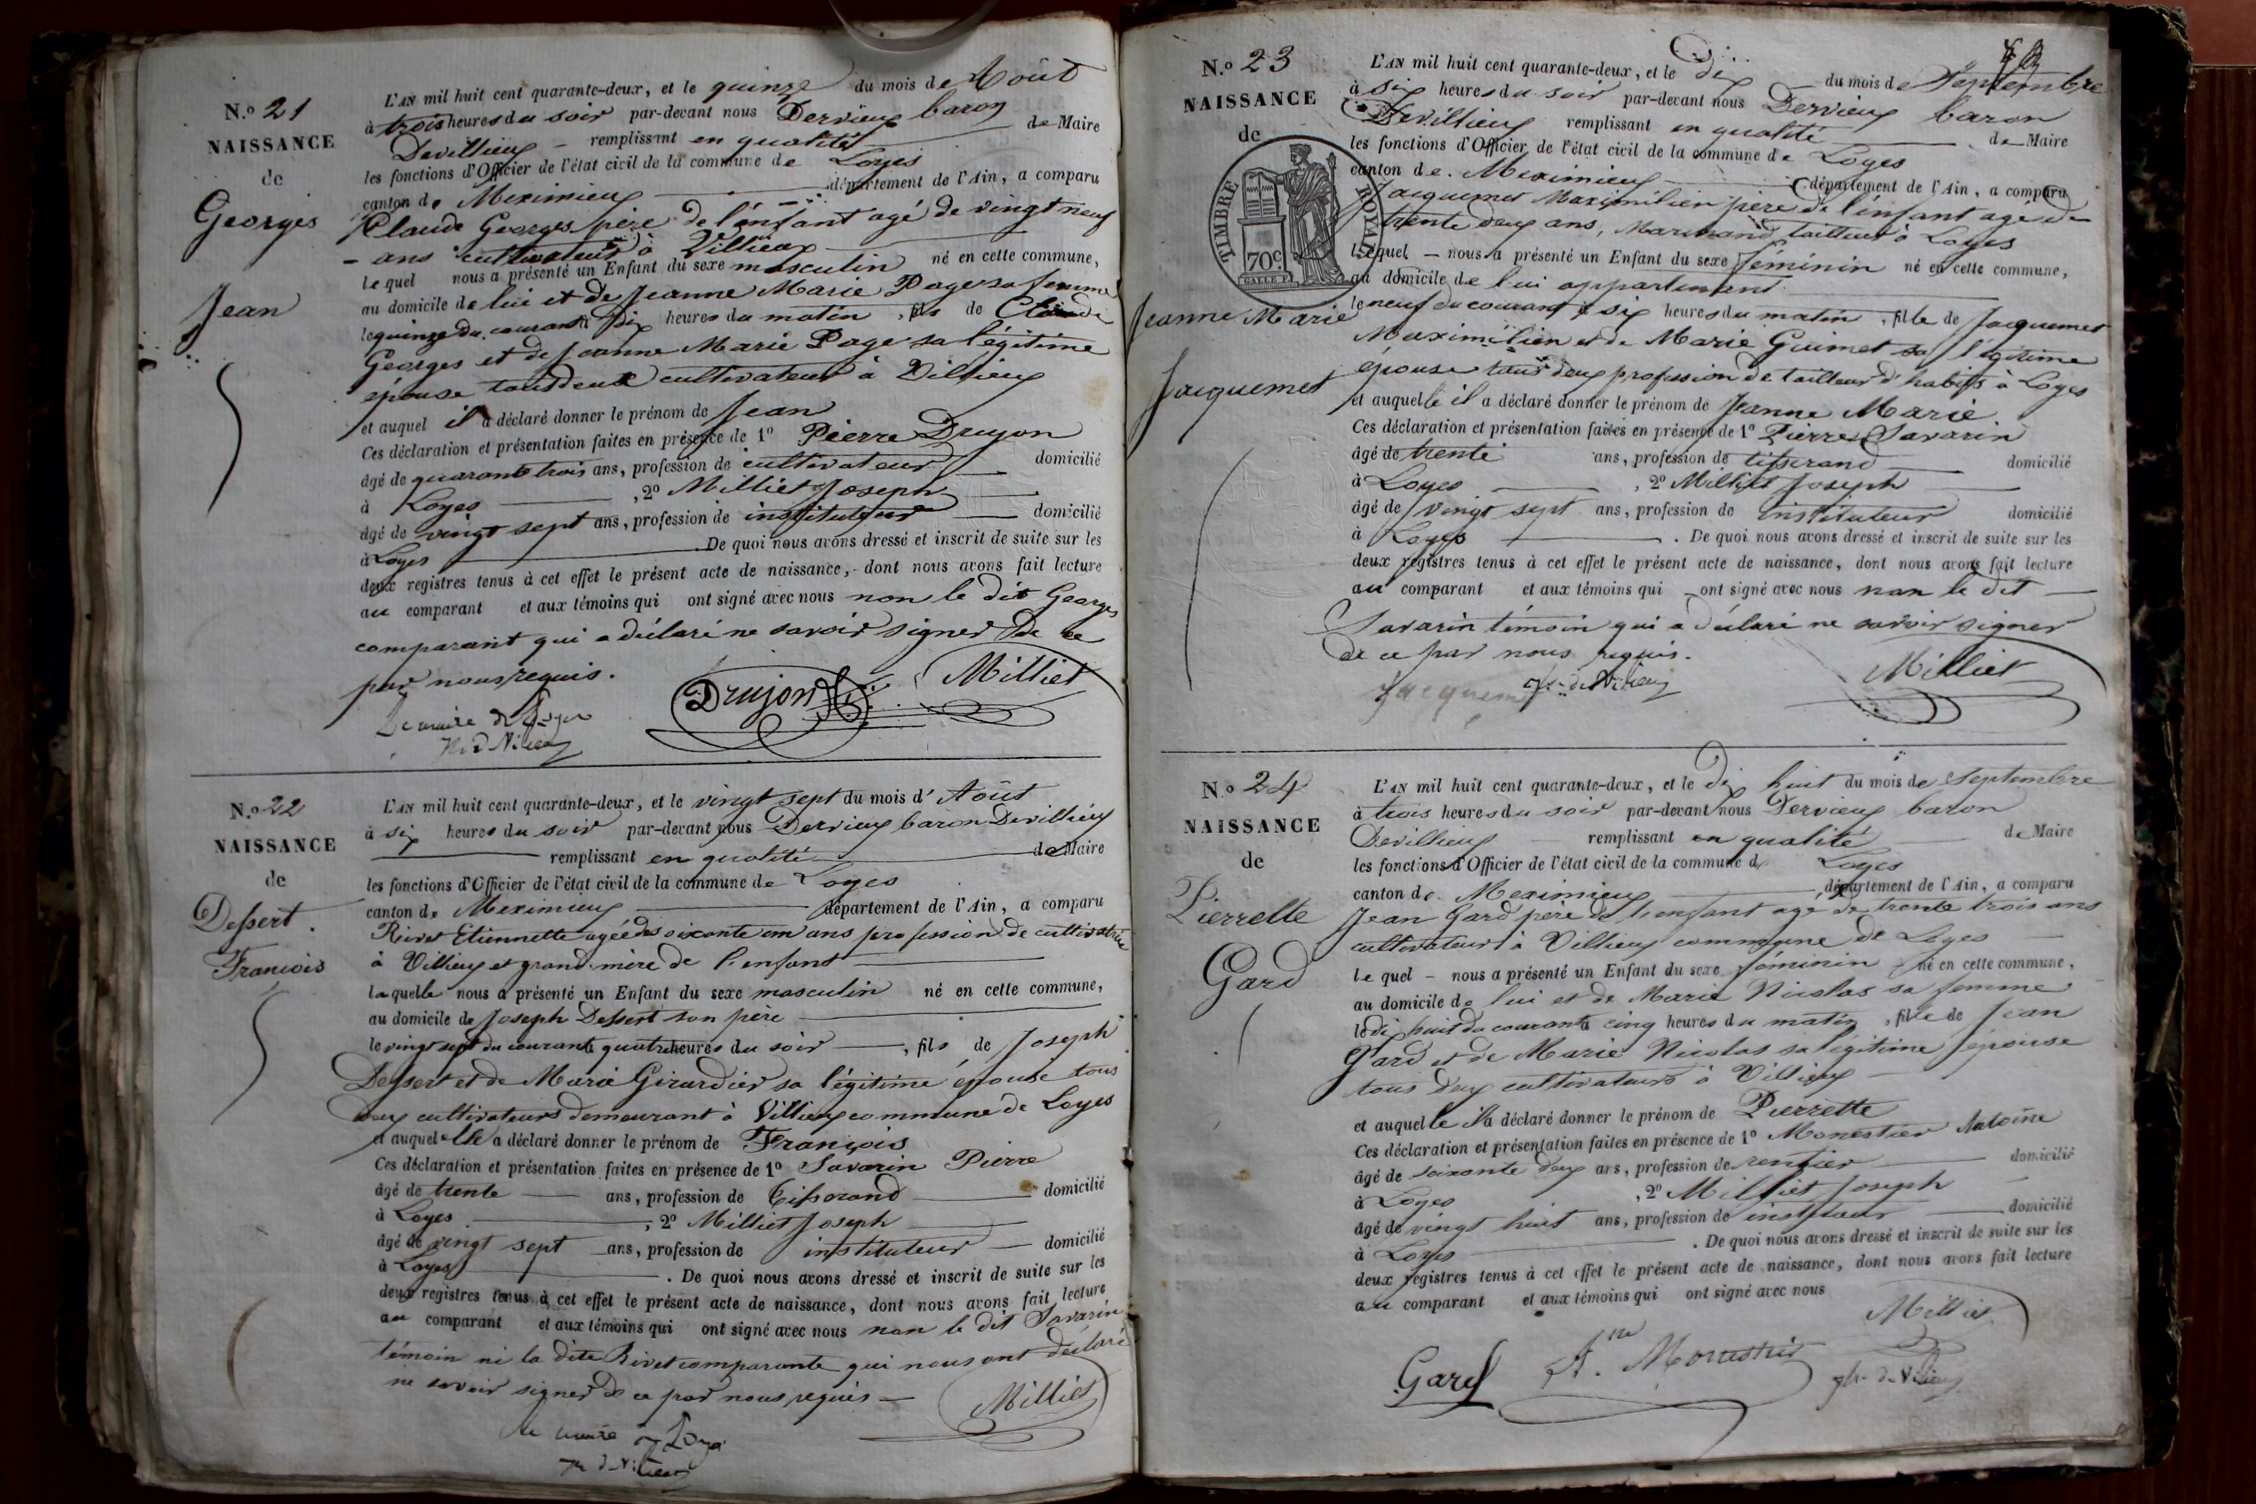 N.o 21
NAISSANCE
de
Georges
Jean
L'AN mil huit cent quarante-deux, et le quinze du mois de Août
à trois heures du soir par-devant nous Dervieux baron
Devillieux - remplissant en qualité de Maire
les fonctions d'Officier de l'état civil de la commune de Loyes
canton de Meximieux département de l'Ain, a comparu
Claude Georges père de l'énfant agé de vingt neuf
- ans cultivateur à Villieux
le quel nous a présenté un Enfant du sexe masculin né en cette commune,
au domicile de lui et de Jeanne Marie Page sa femme
le quinze du courant à dix heures du matin, fils de Claude
Georges et de Jeanne Marie Page sa légitime
épouse tous deux cultivateurs à Villieux
et auquel il a déclaré donner le prénom de Jean
Ces déclaration et présentation faites en présence de 1o Pierre Drujon
âgé de quarante trois ans, profession de cultivateur domicilié
à Loyes, 2o Milliet Joseph
âgé de vingt sept ans, profession de instituteur domicilié
à Loyes. De quoi nous avons dressé et inscrit de suite sur les
deux registres tenus à cet effet le présent acte de naissance, dont nous avons fait lecture
au comparant et aux témoins qui ont signé avec nous non le dit Georges
comparant qui a déclaré ne savoir signer de ce
par nous requis.
Drujon Milliet
Le maire de Loyes
N.o 22
NAISSANCE
de
Dessert
François
L'AN mil huit cent quarante-deux, et le vingt sept du mois d'Août
à six heures du soir par-devant nous Dervieux baron Devillieux
remplissant en qualité de Maire
les fonctions d'Officier de l'état civil de la commune de Loyes
canton de Meximieux département de l'Ain, a comparu
Rivet Etiennette agée de soixante un ans profession de cultivatrice
à Villieux et grand-mère de l'enfant
laquelle nous a présenté un Enfant du sexe masculin né en cette commune,
au domicile de Joseph Dessert son père
le vingt sept du courant à quatre heures du soir, fils de Joseph
Dessert et de Marie Girardier sa légitime épouse tous
deux cultivateurs demeurant à Villieux commune de Loyes
et auquel elle a déclaré donner le prénom de François
Ces déclaration et présentation faites en présence de 1o Savarin Pierre
âgé de trente ans, profession de tisserand domicilié
à Loyes, 2o Milliet Joseph
âgé de vingt sept ans, profession de instituteur domicilié
à Loyes. De quoi nous avons dressé et inscrit de suite sur les
deux registres tenus à cet effet le présent acte de naissance, dont nous avons fait lecture
au comparant et aux témoins qui ont signé avec nous non le dit Savarin
témoin ni la dite Rivet comparante qui nous ont déclaré
ne savoir signer de ce par nous requis -
Milliet
Le maire de Loyes
N.o 23
NAISSANCE
de
TIMBRE ROYAL
70c
Jeanne Marie
Jacquemet
L'AN mil huit cent quarante-deux, et le Dix du mois de Septembre
à six heures du soir par-devant nous Dervieux baron
Devillieux remplissant en qualité de Maire
les fonctions d'Officier de l'état civil de la commune de Loyes
canton de Meximieux département de l'Ain, a comparu
Jacquemet Maximilien père de l'énfant agé de
trente deux ans, Marchand tailleur à Loyes
lequel - nous a présenté un Enfant du sexe féminin né en cette commune,
au domicile de lui appartenant
le neuf du courant à six heures du matin, fille de Jacquemet
Maximilien et de Marie Guimet sa légitime
épouse tous deux profession de tailleur d'habits à Loyes
et auquel le il a déclaré donner le prénom de Jeanne Marie
Ces déclaration et présentation faites en présence de 1o Pierre Savarin
âgé de trente ans, profession de tisserand domicilié
à Loyes, 2o Milliet Joseph
âgé de vingt sept ans, profession de instituteur domicilié
à Loyes. De quoi nous avons dressé et inscrit de suite sur les
deux registres tenus à cet effet le présent acte de naissance, dont nous avons fait lecture
au comparant et aux témoins qui ont signé avec nous non le dit
Savarin témoin qui a déclaré ne savoir signer
de ce par nous requis.
Jacquemet Milliet
N.o 24
NAISSANCE
de
Pierrette
Gard
L'AN mil huit cent quarante-deux, et le Dix huit du mois de Septembre
à trois heures du soir par-devant nous Dervieux baron
Devillieux remplissant en qualité de Maire
les fonctions d'Officier de l'état civil de la commune de Loyes
canton de Meximieux département de l'Ain, a comparu
Jean Gard père de l'enfant agé de trente trois ans
cultivateur à Villieux commune de Loyes
le quel - nous a présenté un Enfant du sexe féminin né en cette commune,
au domicile de lui et de Marie Nicolas sa femme
le dix huit du courant à cinq heures du matin, fille de Jean
Gard et de Marie Nicolas sa légitime épouse
tous deux cultivateurs à Villieux
et auquel le il a déclaré donner le prénom de Pierrette
Ces déclaration et présentation faites en présence de 1o Monestier Antoine
âgé de soixante deux ans, profession de rentier domicilié
à Loyes, 2o Milliet Joseph
âgé de vingt huit ans, profession de instituteur domicilié
à Loyes. De quoi nous avons dressé et inscrit de suite sur les
deux registres tenus à cet effet le présent acte de naissance, dont nous avons fait lecture
au comparant et aux témoins qui ont signé avec nous
Milliet
Gard A. Monestier